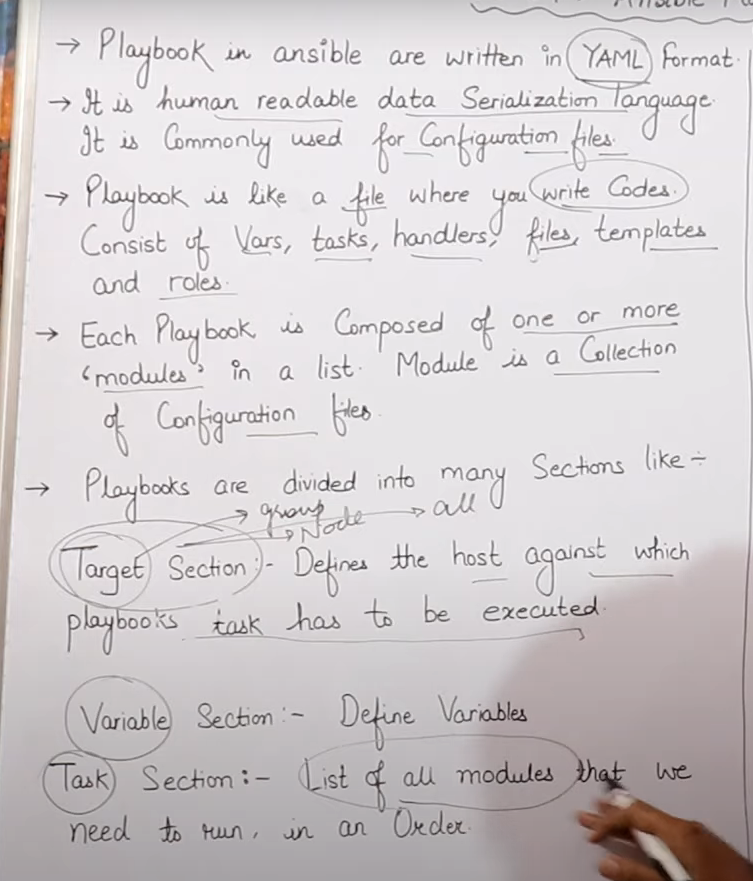 → Playbook in ansible are written in YAML format.
→ It is human readable data Serialization language.
It is Commonly used for Configuration files.
→ Playbook is like a file where you write Codes.
Consist of Vars, tasks, handlers, files, templates
and roles.
→ Each Playbook is Composed of one or more
'modules' in a list. Module is a Collection
of Configuration files.
→ Playbooks are divided into many Sections like ÷
→ group → all
→ Node
Target Section :- Defines the host against which
playbooks task has to be executed.
Variable Section :- Define Variables
Task Section :- List of all modules that we
need to run, in an Order.